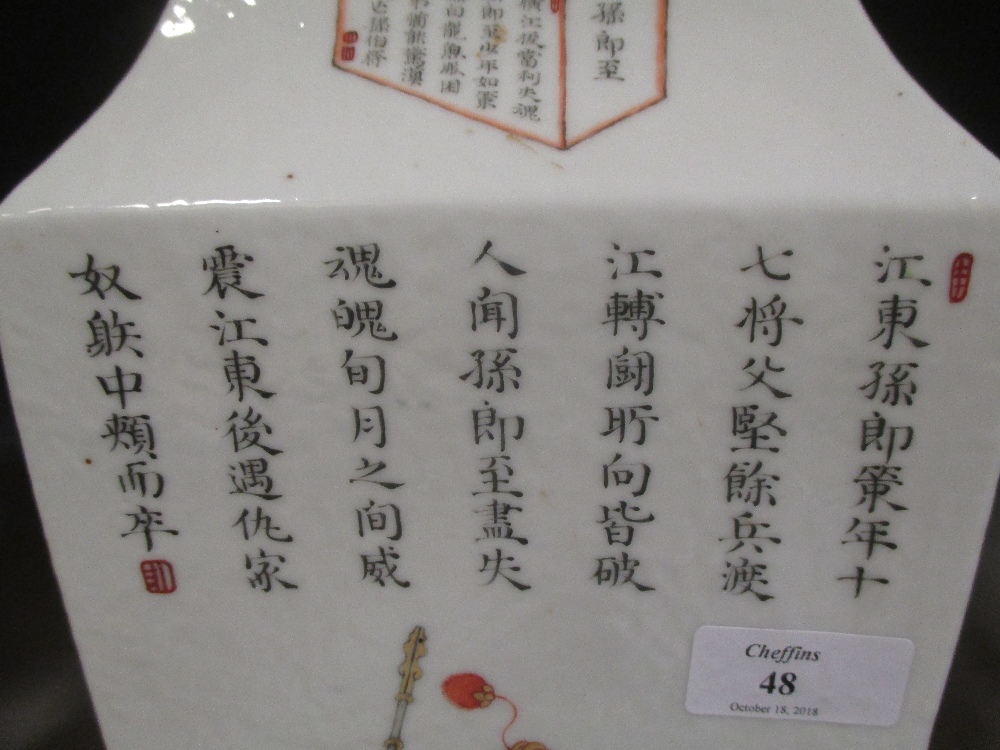 孫郎至
橫江後當利失魂
江東孫郎策年十
七將父堅餘兵渡
江轉鬪所向皆破
人聞孫郎至盡失
魂魄旬月之间威
震江東後遇仇家
奴躲中頰而卒
Cheffins
48
October 18, 2018